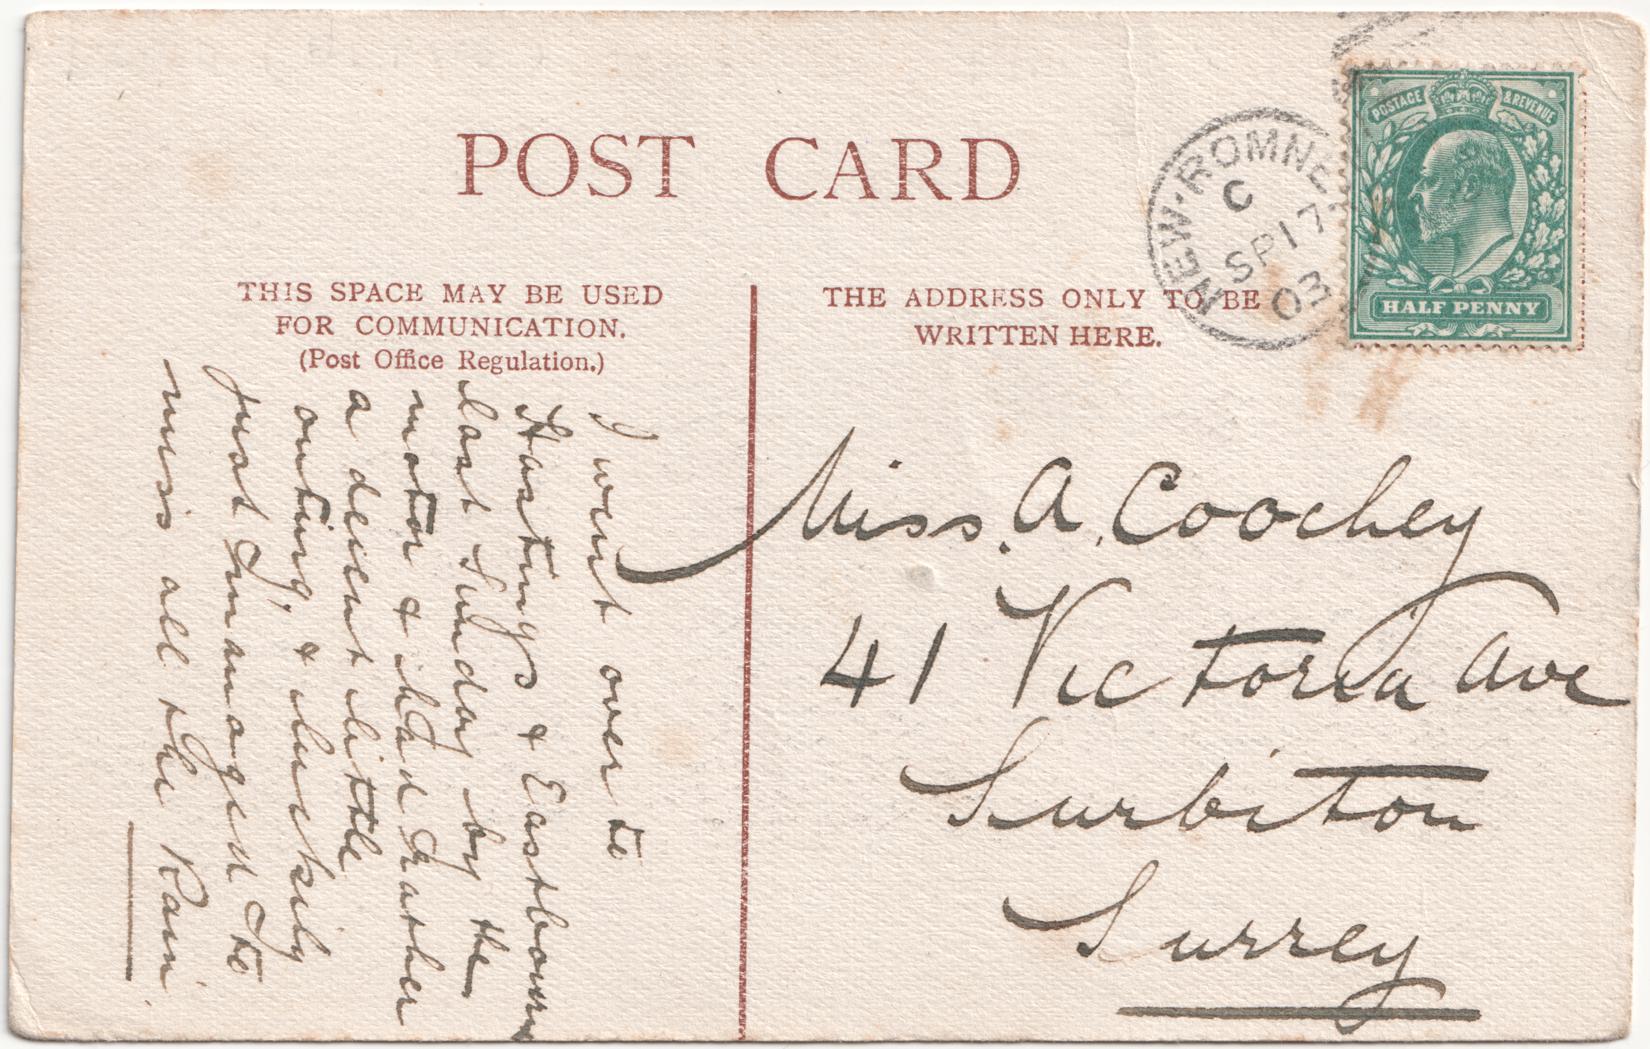 POST CARD
THIS SPACE MAY BE USED
FOR COMMUNICATION.
(Post Office Regulation.)
THE ADDRESS ONLY TO BE
WRITTEN HERE.
NEW·ROMNE
C
SP 17
03
POSTAGE & REVENUE
HALF PENNY
I went over to
Hastings & Eastbourne
last Sunday by the
motor & had rather
a decent little
outing, & luckily
just managed to
miss all the Rain
Miss. A. Coochey
41 Victoria Ave
Surbiton
Surrey